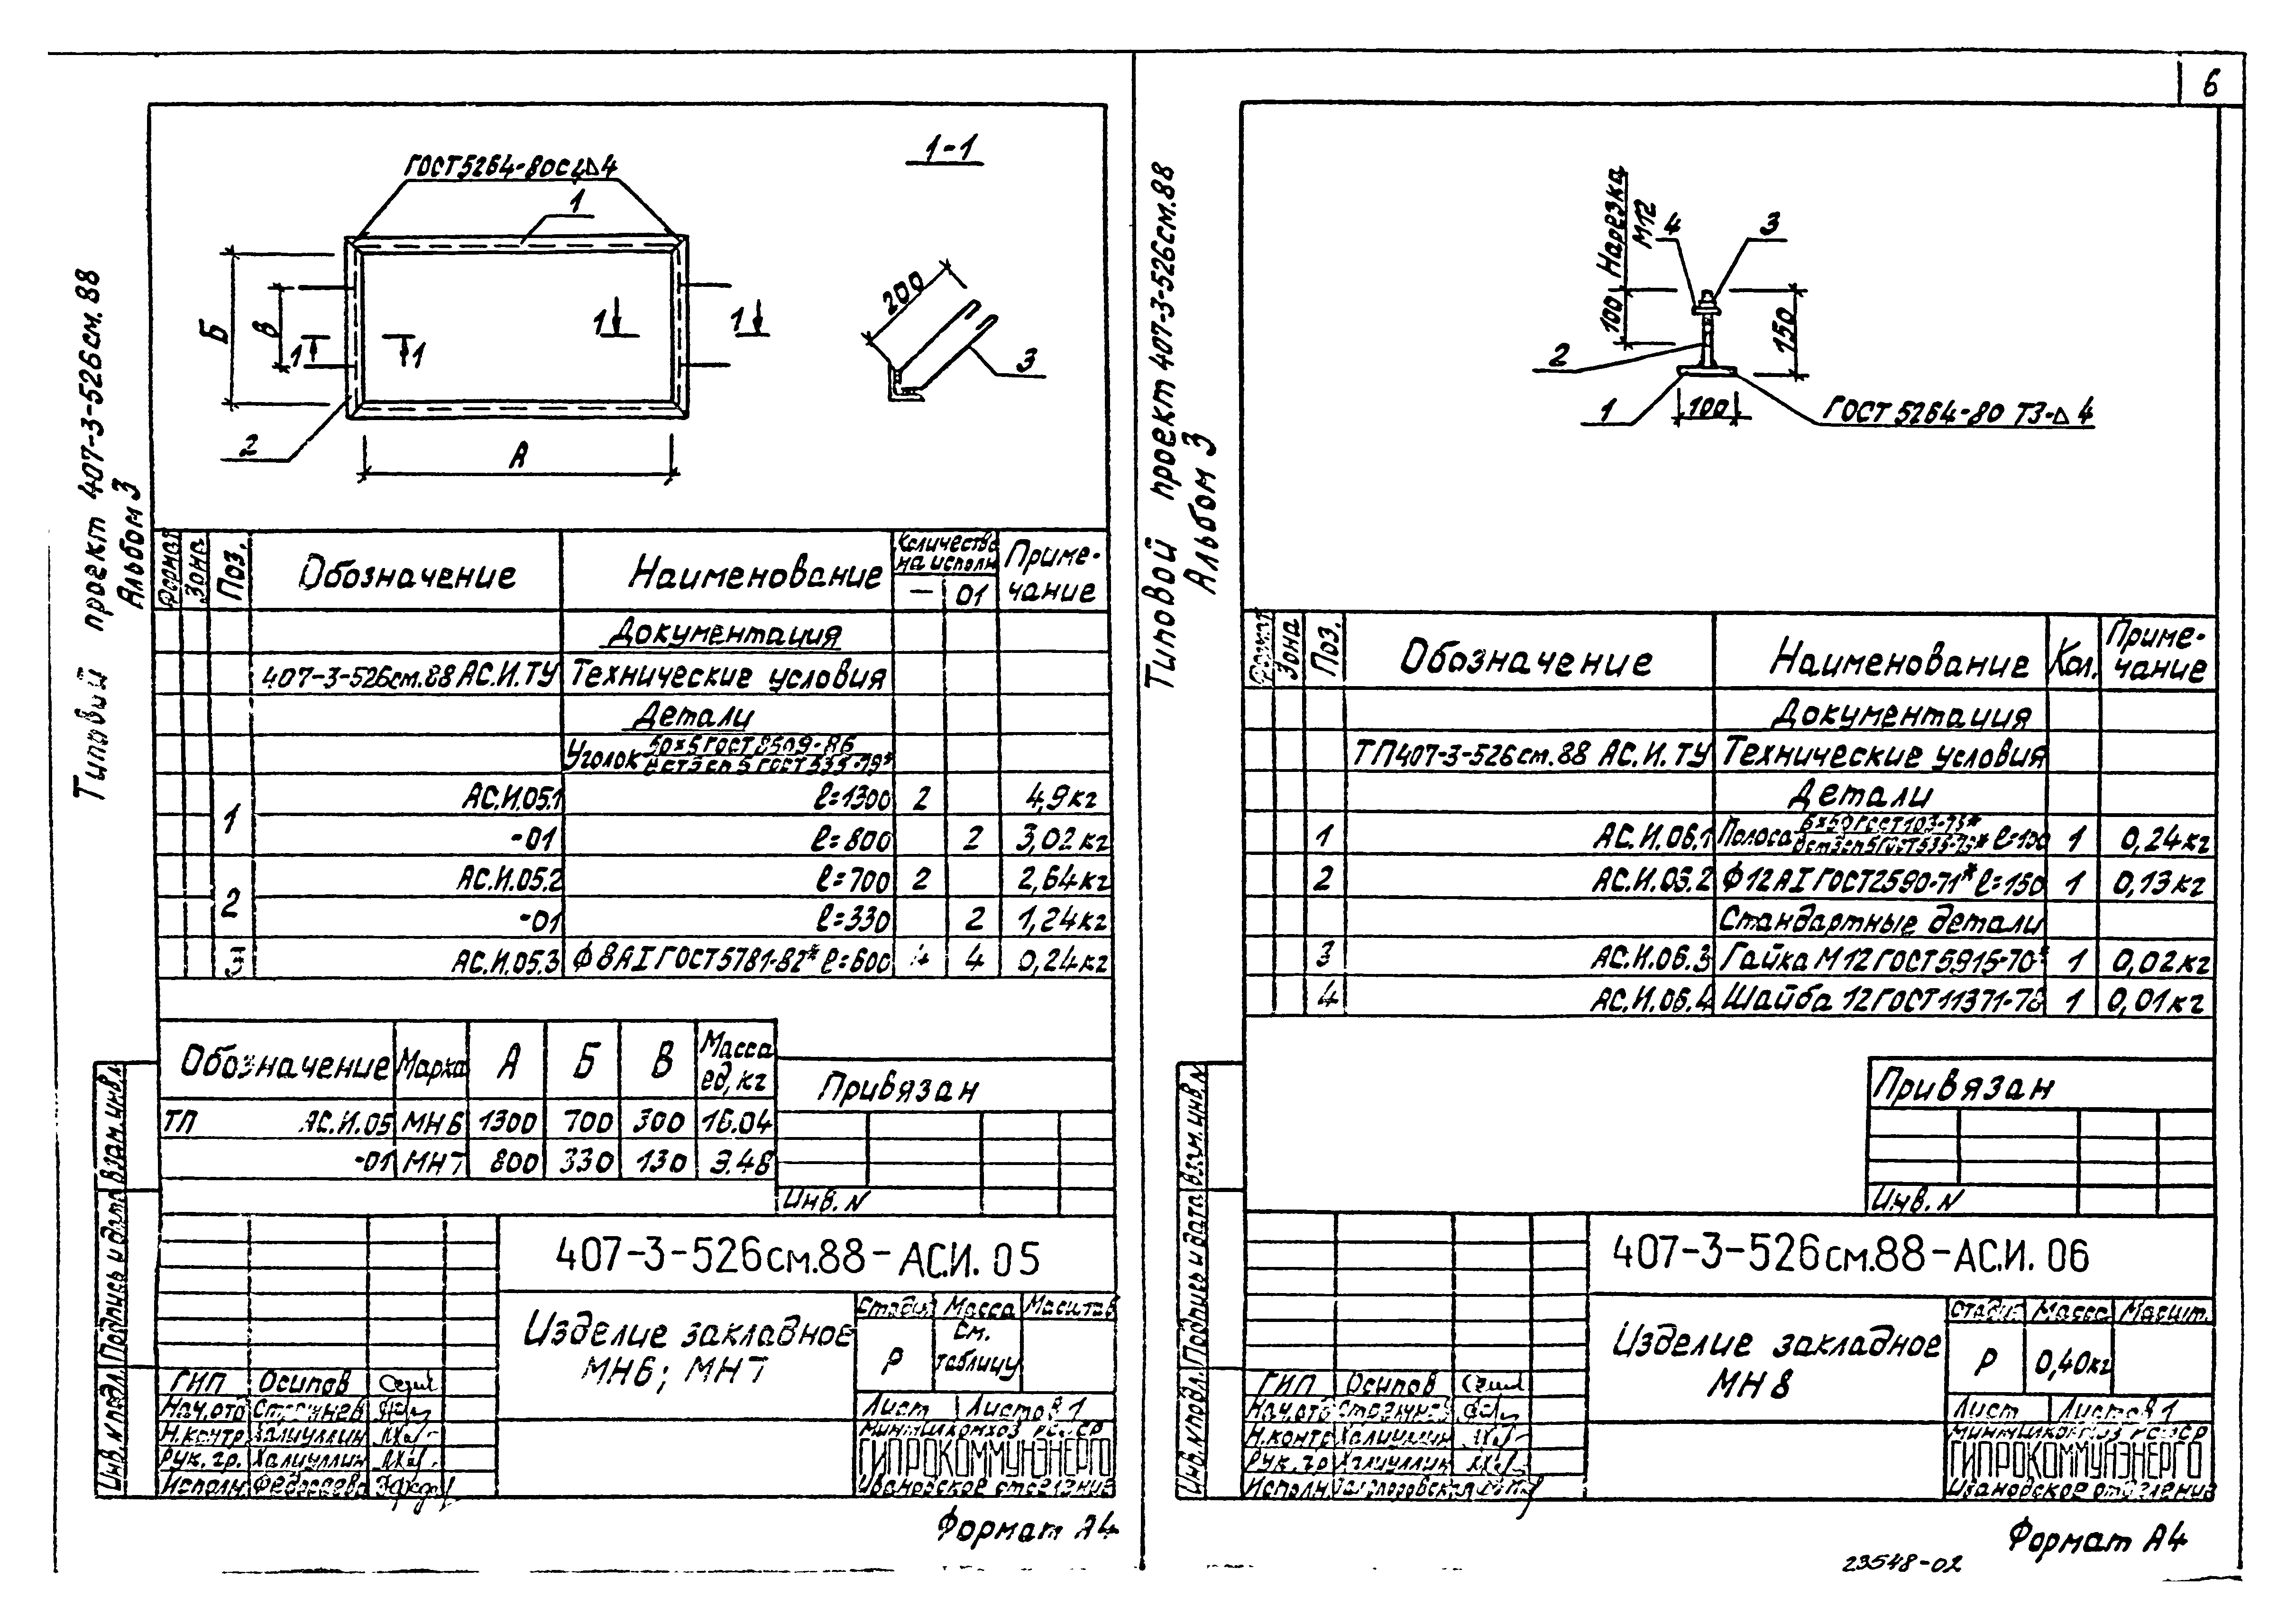 6
Типовой проект 407-3-526см.88
Альбом 3
ГОСТ 5264-80 С2 △4
1-1
1
Б
В
1
1
1
1
2
А
200
3
Формат
Зона
Поз.
Обозначение
Наименование
Количество на исполн
—
01
Приме-
чание
Документация
407-3-526см.88 АС.И.ТУ Технические условия
Детали
Уголок 50×5 ГОСТ 8509-86
Вст3сп5 ГОСТ 535-79*
1 АС.И.05.1 ℓ=1300 2 4,9кг
-01 ℓ=800 2 3,02кг
2 АС.И.05.2 ℓ=700 2 2,64кг
-01 ℓ=330 2 1,24кг
3 АС.И.05.3 Ф8АI ГОСТ5781-82* ℓ=600 4 4 0,24кг
Обозначение Марка А Б В Масса
ед, кг
ТП АС.И.05 МН6 1300 700 300 16.04
-01 МН7 800 330 130 9.48
Привязан
Инв. N
Взам. инв. N
Подпись и дата
Инв. N подл.
407-3-526см.88-АС.И. 05
Изделие закладное
МН6; МН7
Стадия Масса Масштаб
Р
См.
таблицу
Лист Листов 1
Минжилкомхоз РСФСР
ГИПРОКОММУНЭНЕРГО
Ивановское отделение
ГИП Осипов
Нач.отд
Н.контр Халиуллин
Рук. гр. Халиуллин
Исполн. Федосеева
Формат А4
Типовой проект 407-3-526см.88
Альбом 3
Нарезка
М12
100
4
3
2
150
1
100
ГОСТ 5264-80 Т3-△4
Формат
Зона
Поз.
Обозначение
Наименование
Кол.
Приме-
чание
Документация
ТП407-3-526см.88 АС.И.ТУ Технические условия
Детали
1 АС.И.06.1 Полоса 6×50 ГОСТ 103-73*
Вст3сп5 ГОСТ 535-79* ℓ=100 1 0,24кг
2 АС.И.03.2 Ф12АI ГОСТ2590-71* ℓ=150 1 0,13кг
Стандартные детали
3 АС.И.06.3 Гайка М12 ГОСТ5915-70* 1 0,02кг
4 АС.И.06.4 Шайба 12 ГОСТ11371-78 1 0,01кг
Привязан
Инв. N
Взам. инв. N
Подпись и дата
Инв. N подл.
407-3-526см.88-АС.И. 06
Изделие закладное
МН8
Стадия Масса Масшт.
Р 0,40кг
Лист Листов 1
Минжилкомхоз РСФСР
ГИПРОКОММУНЭНЕРГО
Ивановское отделение
ГИП Осипов
Нач.отд
Н.контр Халиуллин
Рук. гр Халиуллин
Исполн.
Формат А4
23548-02